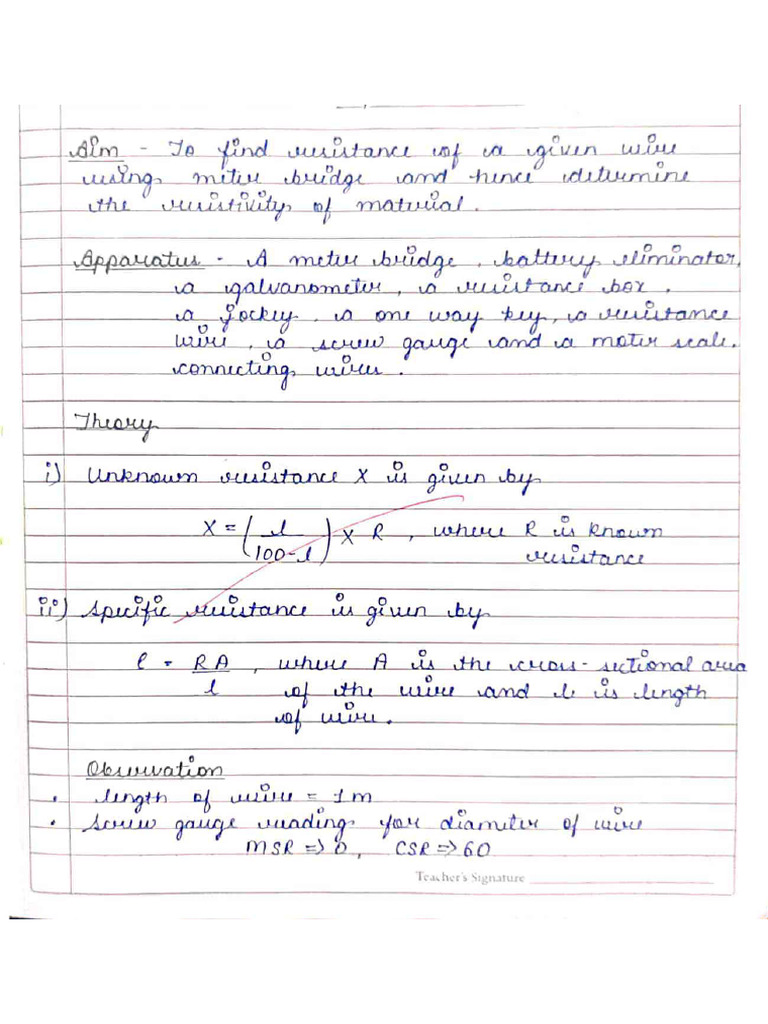 Aim - To find resistance of a given wire
using meter bridge and hence determine
the resistivity of material.
Apparatus - A meter bridge, battery eliminator,
a galvanometer, a resistance box,
a jockey, a one way key, a resistance
wire, a screw gauge and a meter scale,
connecting wires.
Theory
i) Unknown resistance X is given by
X = (l / 100-l) x R, where R is known
resistance
ii) Specific resistance is given by
ρ = RA / l, where A is the cross-sectional area
of the wire and l is length
of wire.
Observation
• length of wire = 1m
• Screw gauge reading for diameter of wire
MSR => 0, CSR => 60
Teacher's Signature